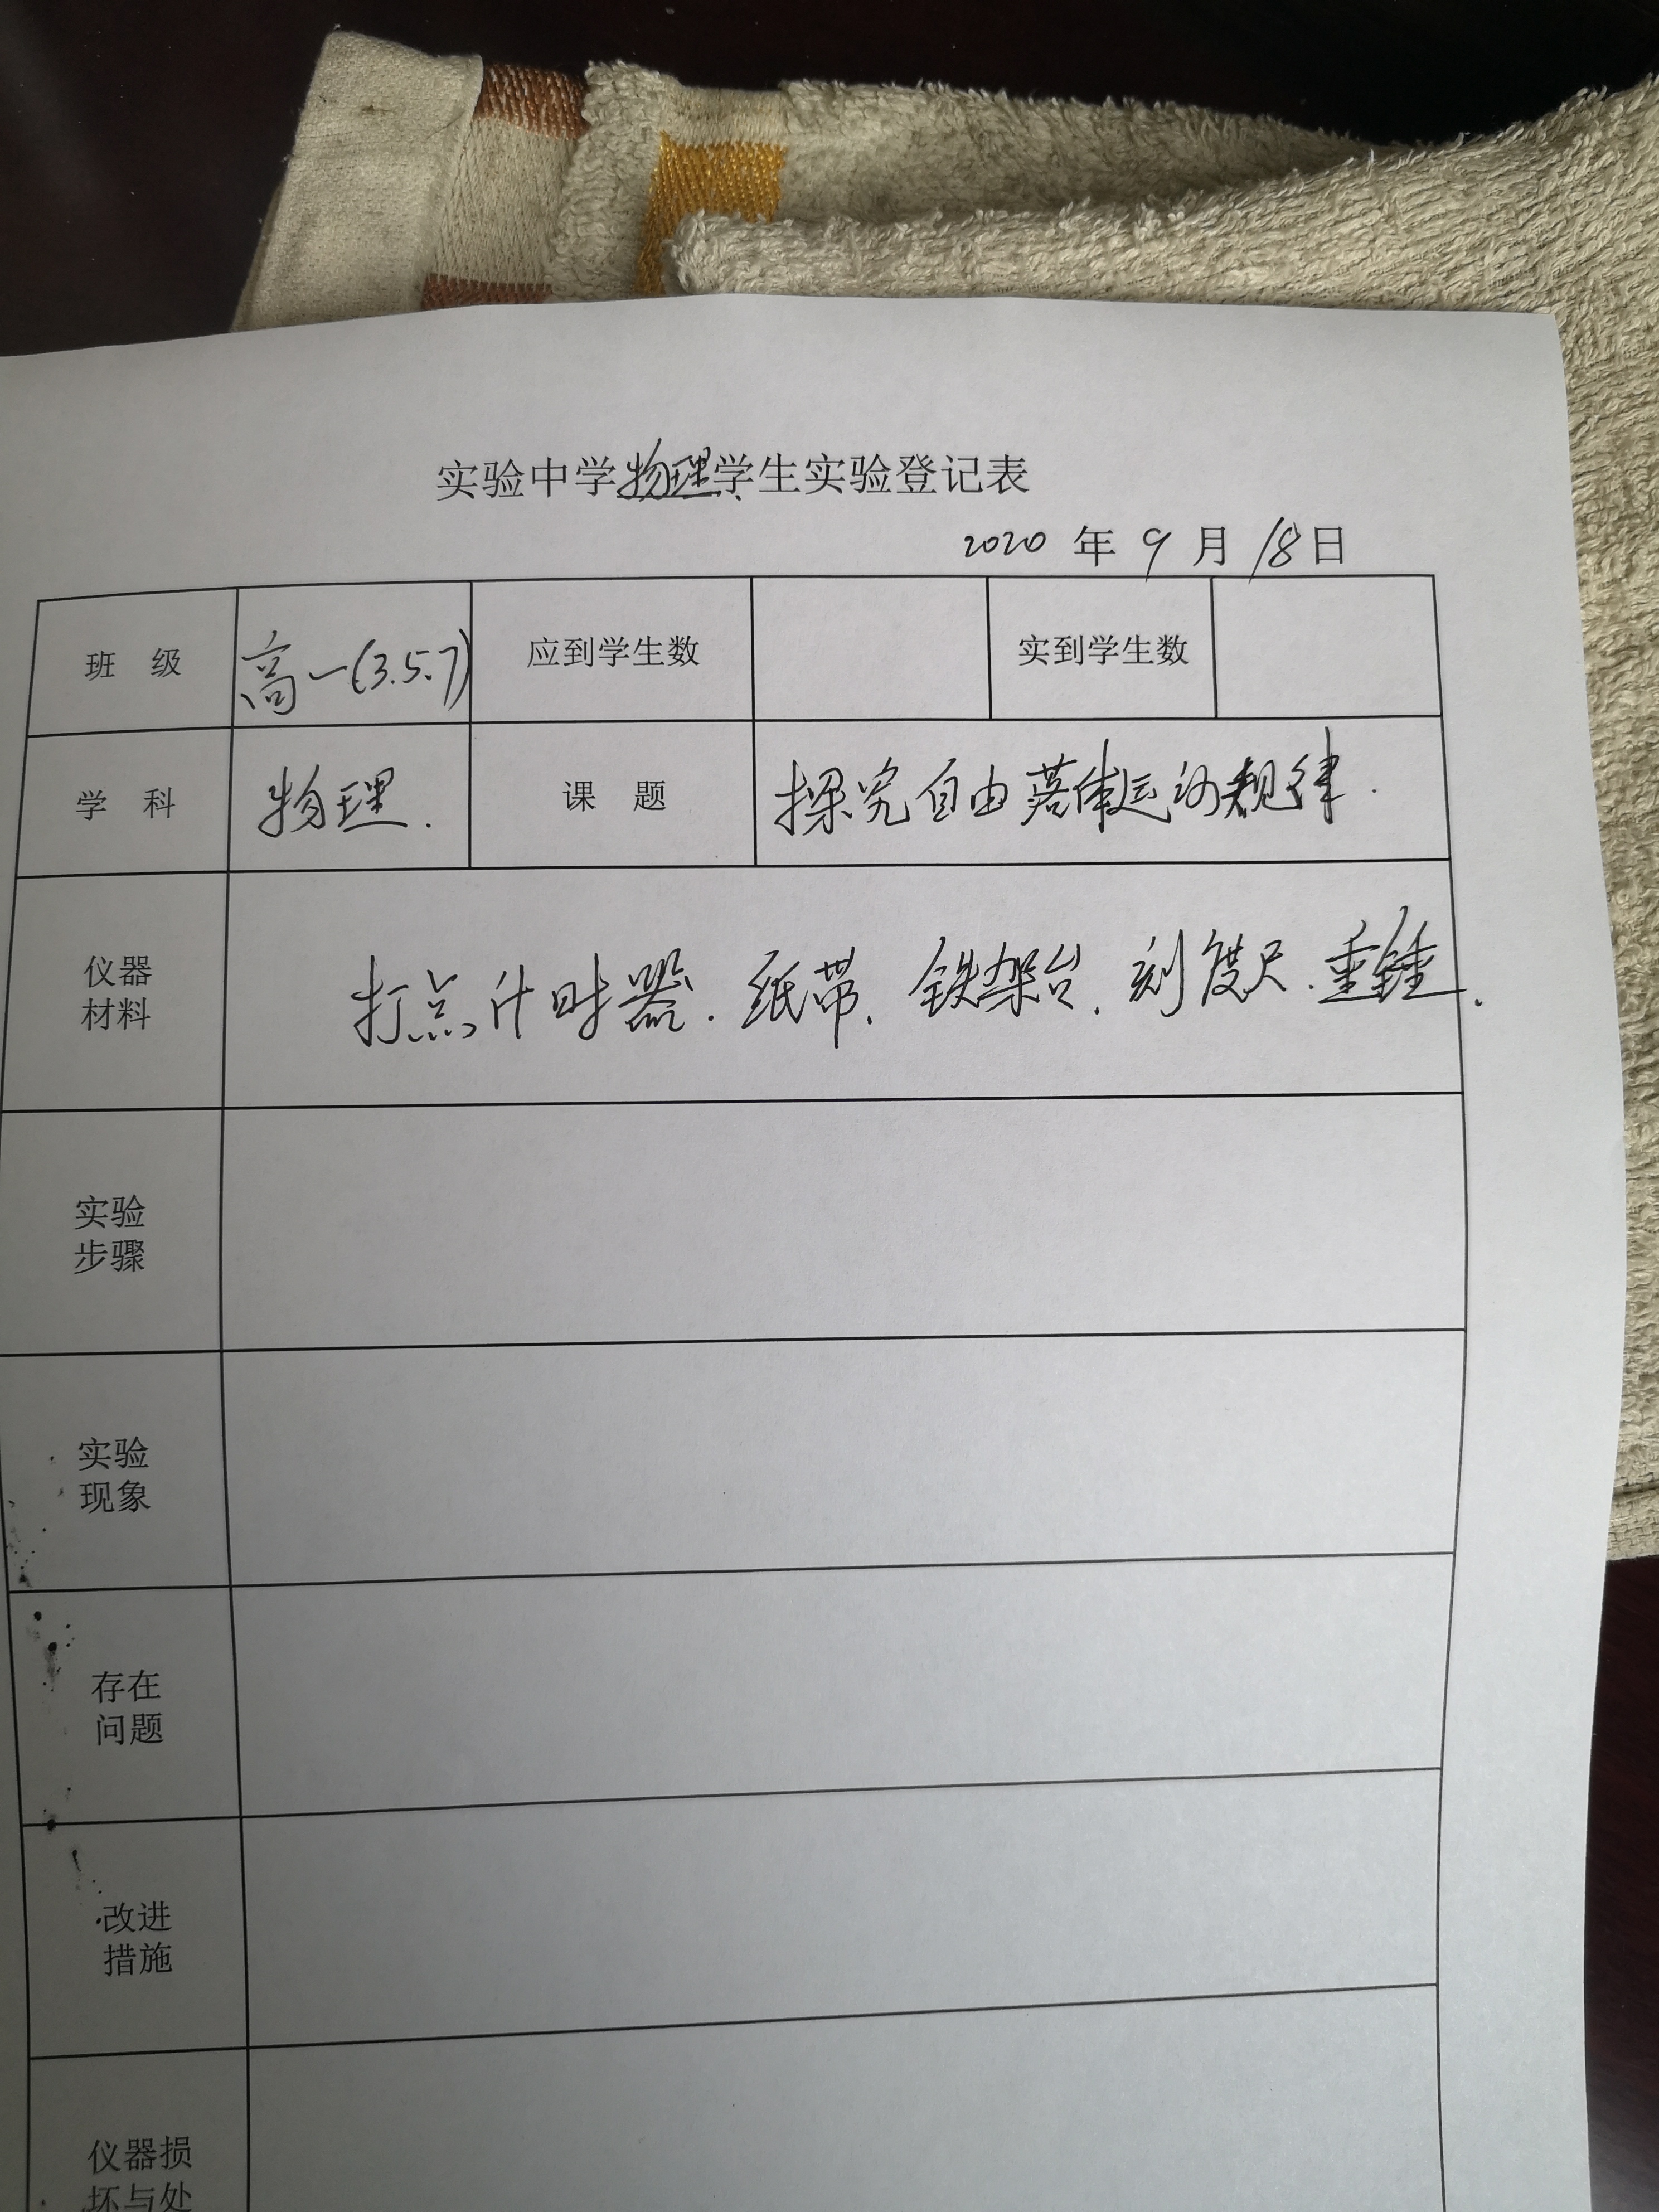 实验中学物理学生实验登记表
2020 年 9 月 18 日
班 级 高一(3.5.7) 应到学生数 实到学生数
学 科 物理. 课 题 探究自由落体运动规律.
仪器
材料
打点计时器. 纸带. 铁架台. 刻度尺. 重锤.
实验
步骤
实验
现象
存在
问题
改进
措施
仪器损
坏与处